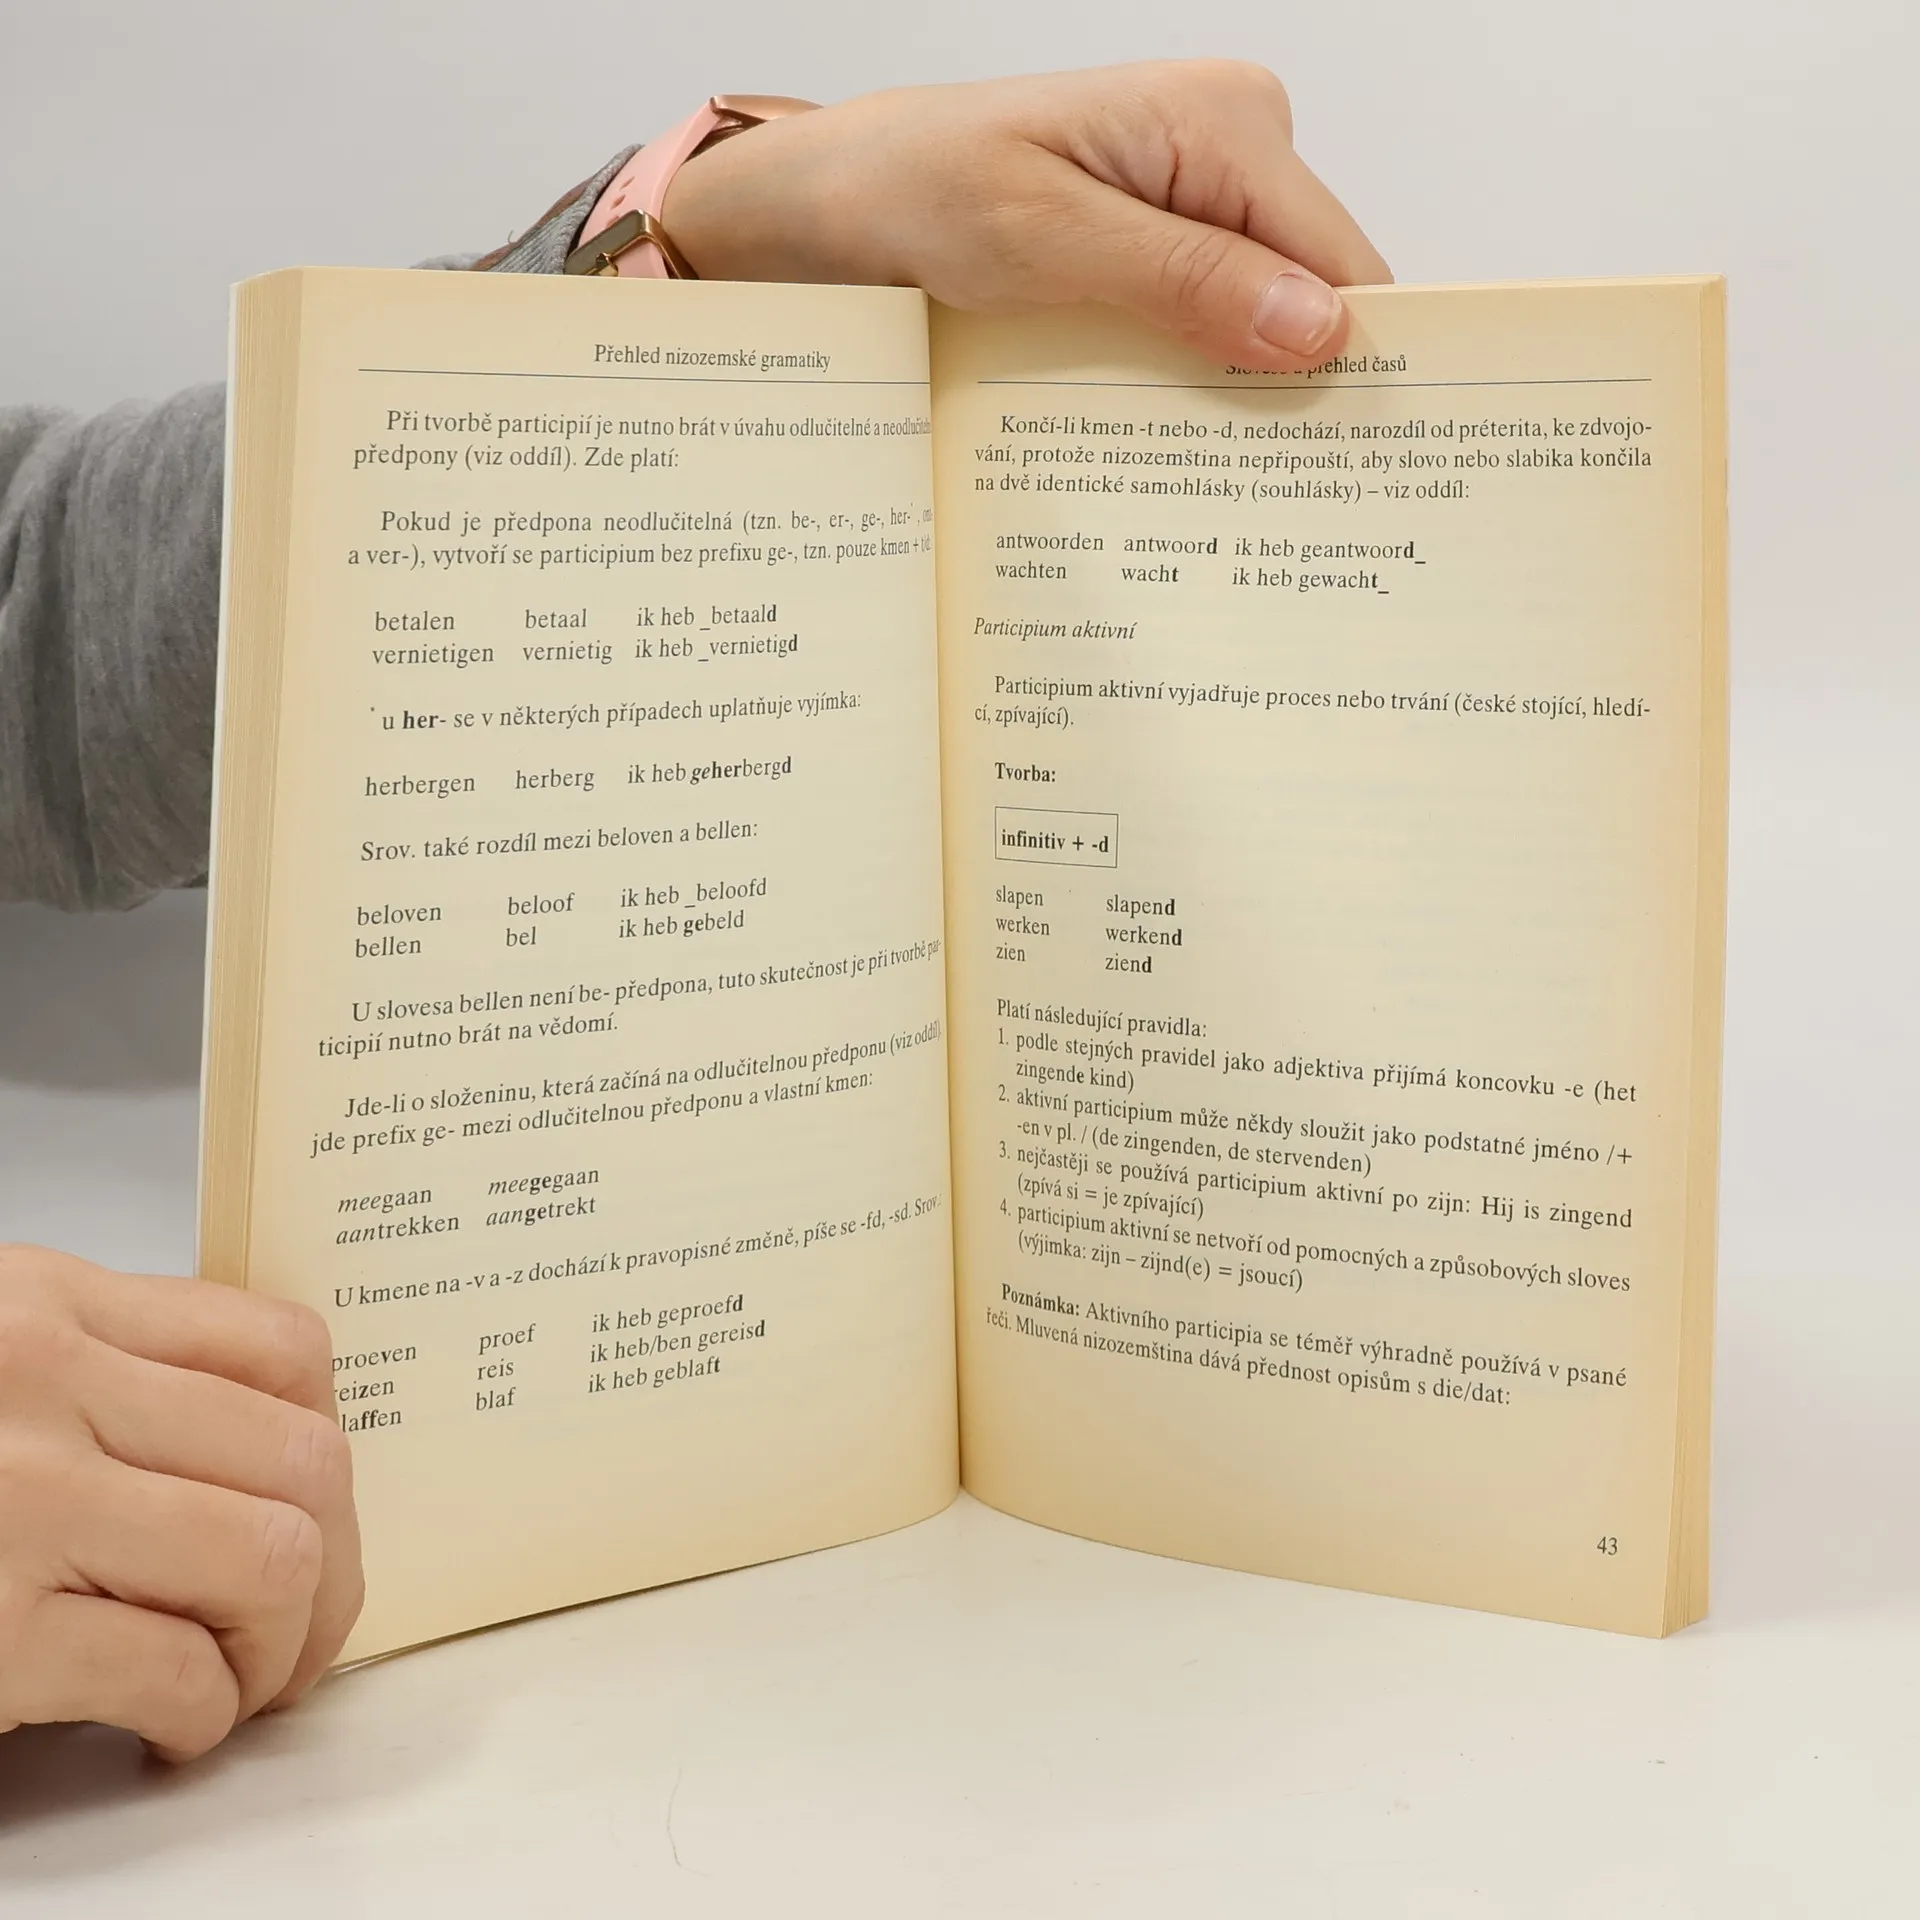 Přehled nizozemské gramatiky
Při tvorbě participií je nutno brát v úvahu odlučitelné a
předpony (viz oddíl). Zde platí:
Pokud je předpona neodlučitelná (tzn. be-, er-, ge-, her-*,
a ver-), vytvoří se participium bez prefixu ge-, tzn. pouze kmen +
betalen betaal ik heb _betaald
vernietigen vernietig ik heb _vernietigd
* u her- se v některých případech uplatňuje vyjímka:
herbergen herberg ik heb geherbergd
Srov. také rozdíl mezi beloven a bellen:
beloven beloof ik heb _beloofd
bellen bel ik heb gebeld
U slovesa bellen není be- předpona, tuto skutečnost je při tvorbě par-
ticipií nutno brát na vědomí.
Jde-li o složeninu, která začíná na odlučitelnou předponu (viz oddíl),
jde prefix ge- mezi odlučitelnou předponu a vlastní kmen:
meegaan meegegaan
aantrekken aangetrekt
U kmene na -v a -z dochází k pravopisné změně, píše se -fd, -sd. Srov.:
proeven proef ik heb geproefd
eizen reis ik heb/ben gereisd
laffen blaf ik heb geblaft
přehled časů
Končí-li kmen -t nebo -d, nedochází, narozdíl od préterita, ke zdvojo-
vání, protože nizozemština nepřipouští, aby slovo nebo slabika končila
na dvě identické samohlásky (souhlásky) – viz oddíl:
antwoorden antwoord ik heb geantwoord_
wachten wacht ik heb gewacht_
Participium aktivní
Participium aktivní vyjadřuje proces nebo trvání (české stojící, hledí-
cí, zpívající).
Tvorba:
infinitiv + -d
slapen slapend
werken werkend
zien ziend
Platí následující pravidla:
1. podle stejných pravidel jako adjektiva přijímá koncovku -e (het
zingende kind)
2. aktivní participium může někdy sloužit jako podstatné jméno /+
-en v pl. / (de zingenden, de stervenden)
3. nejčastěji se používá participium aktivní po zijn: Hij is zingend
(zpívá si = je zpívající)
4. participium aktivní se netvoří od pomocných a způsobových sloves
(výjimka: zijn – zijnd(e) = jsoucí)
Poznámka: Aktivního participia se téměř výhradně používá v psané
řeči. Mluvená nizozemština dává přednost opisům s die/dat:
43